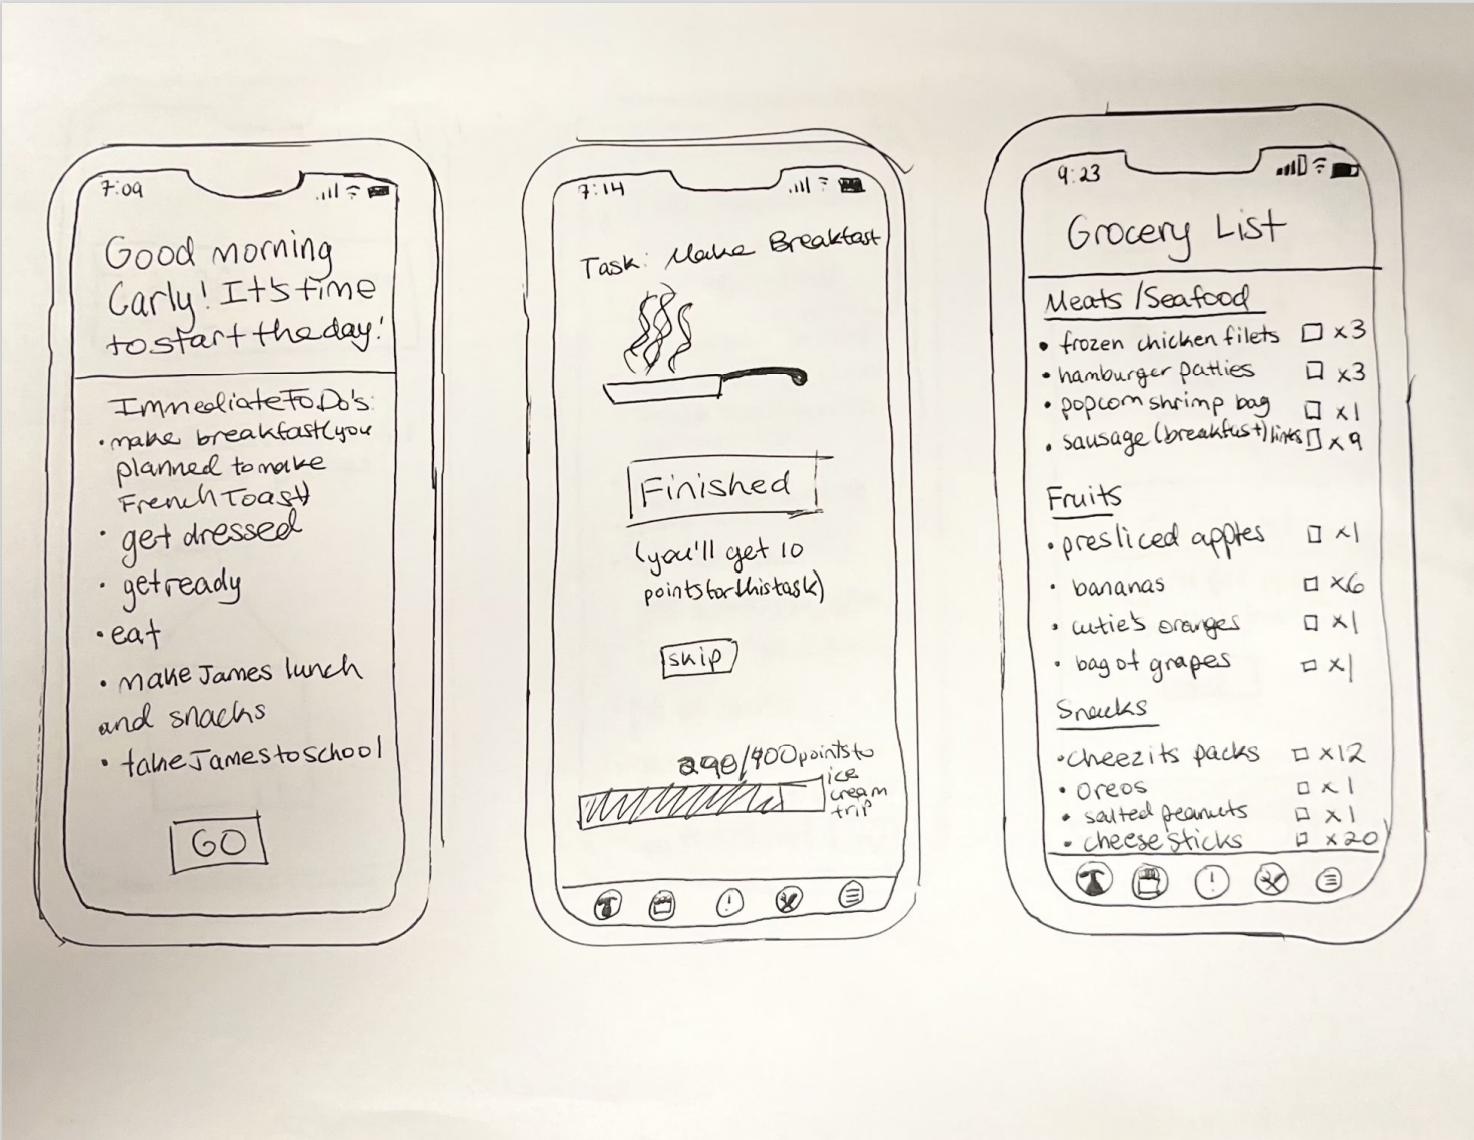 7:09
Good morning
Carly! It's time
to start the day!
Immediate To Do's:
• make breakfast (you
planned to make
French Toast)
• get dressed
• get ready
• eat
• make James lunch
and snacks
• take James to school
GO
7:14
Task: Make Breakfast
Finished
(you'll get 10
points for this task)
skip
290/400 points to
ice
cream
trip
9:23
Grocery List
Meats/Seafood
• frozen chicken filets x3
• hamburger patties x3
• popcorn shrimp bag x1
• sausage (breakfast) links x9
Fruits
• presliced apples x1
• bananas x6
• cutie's oranges x1
• bag of grapes x1
Snacks
• cheezits packs x12
• oreos x1
• salted peanuts x1
• cheese sticks x20